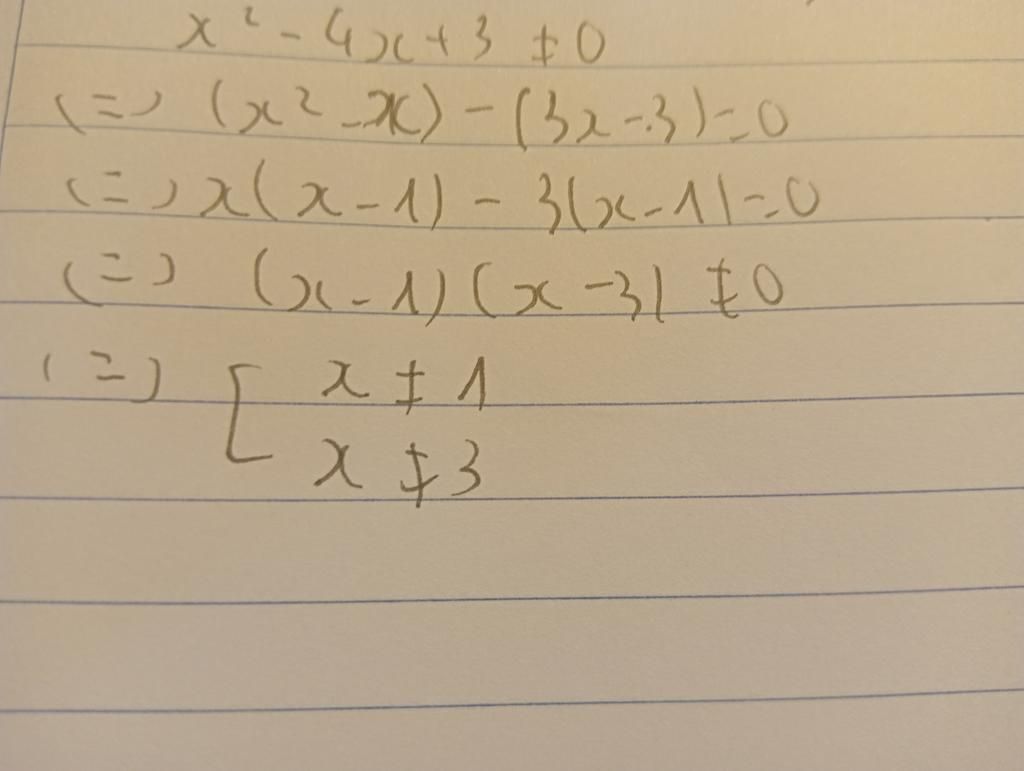 x² - 4x + 3 ≠ 0
(=) (x² - x) - (3x - 3) = 0
(=) x(x - 1) - 3(x - 1) = 0
(=) (x - 1)(x - 3) ≠ 0
(=) [ x ≠ 1
x ≠ 3